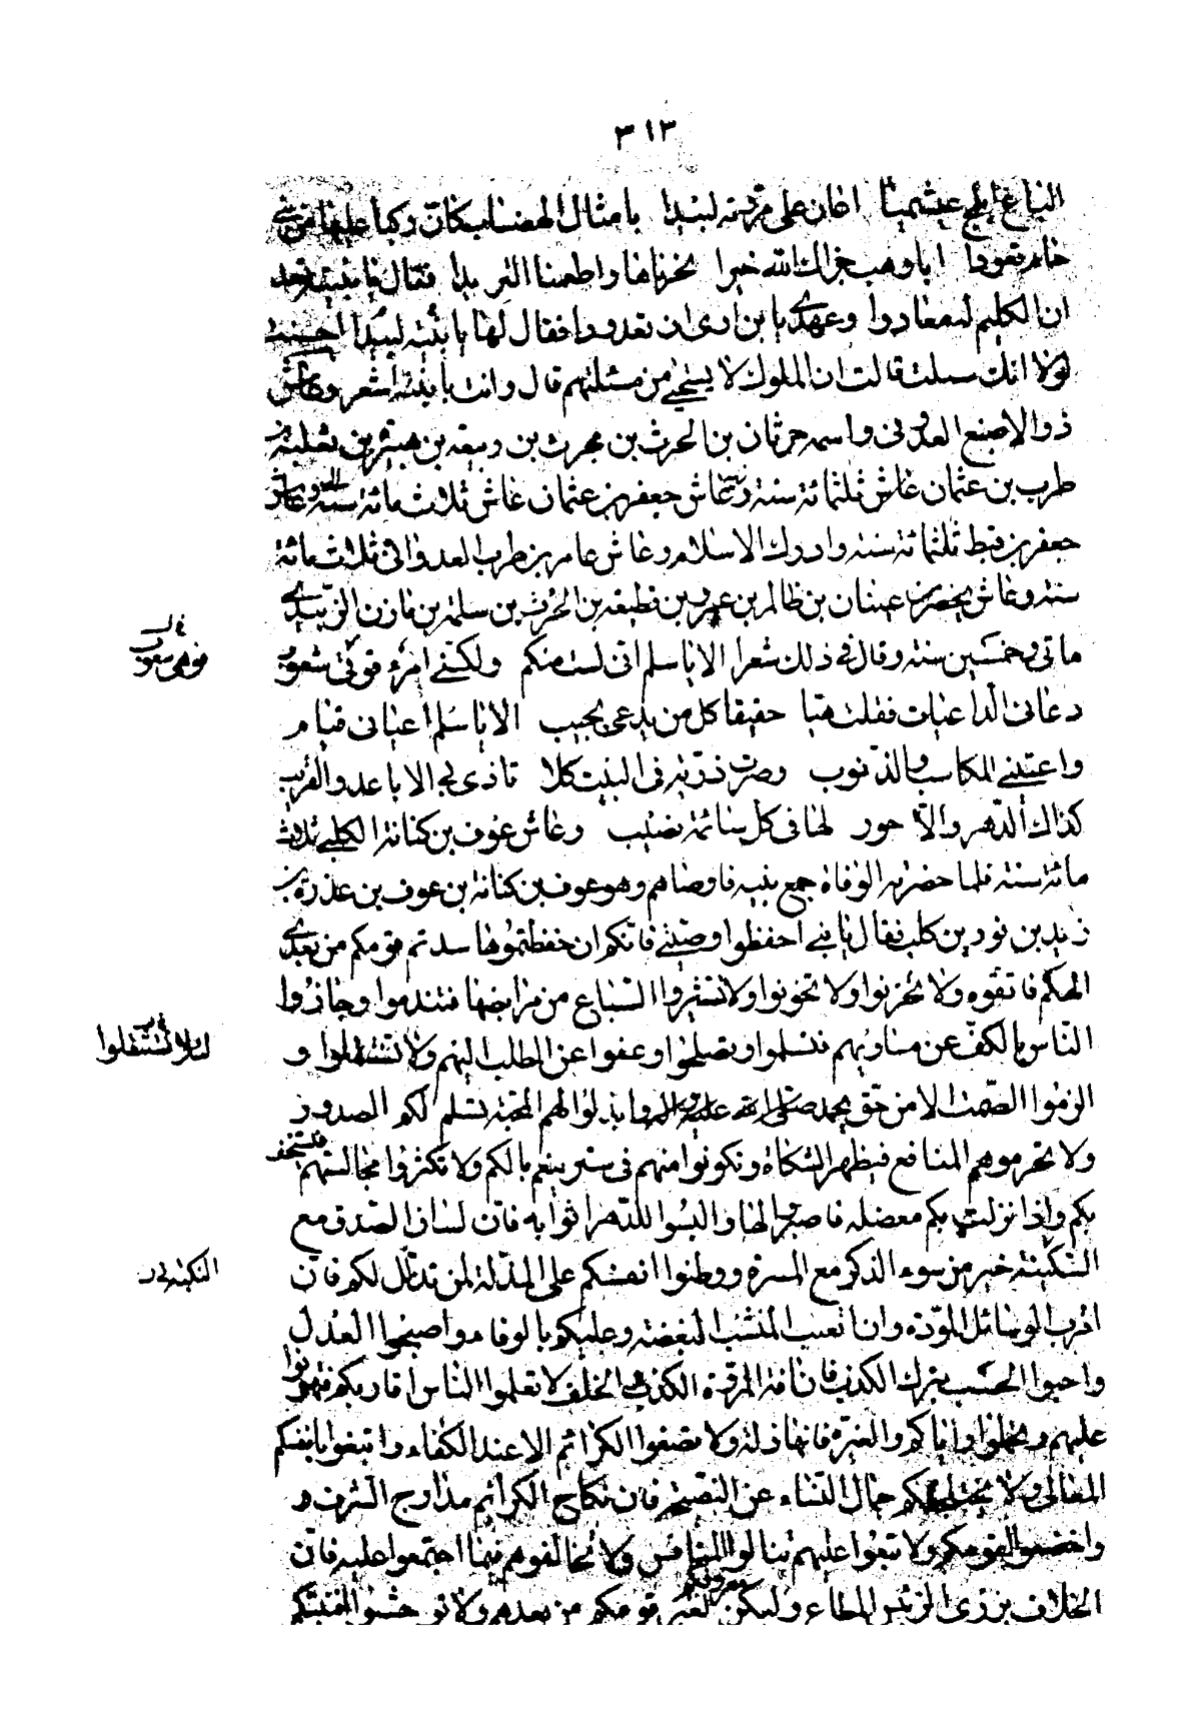 ٣١٣
الباع ابلج عبشميا اعان على مروته لبيدا بامثال الهضاب كان ركبا عليها من بني
حام قعودا ابا وهب جزاك الله خيرا نحرناها واطعمنا الثريدا فقال يا بنية
ان الكريم له معاد وعهدي بابن اروى ان تعودا فقال لها يا بنية لبيدا احسنت
لولا انك سئلت قالت ان الملوك لا يستحيى من مسئلتهم قال وانت يا بنية اشعر وعاش
ذو الاصبع العدواني واسمه حرثان بن الحرث بن محرث بن ربيعة بن هبيرة بن ثعلبة بن
ظرب بن عثمان عاش ثلثمائة سنة وعاش جعفر بن عثمان عاش ثلاث مائة سنة وعاش
جعفر بن قبط ثلثمائة سنة وادرك الاسلام وعاش عامر بن ظرب العدواني ثلاث مائة
سنة وعاش محصن بن عتبان بن ظالم بن عمرو بن قطيعة بن الحرث بن سلمة بن مازن الزبيدي
ماتى وخمسين سنة وقال في ذلك شعرا الا يا سلم انى لست منكم ولكني امرء قوتي شعوب
فوهى سغوب
دعاني الداعيات فقلت هيا حقيقا كل من يدعى يجيب الا يا سلم اعياني قيام
واعيتني المكاسب والذنوب وصرت ذرية في البيت كلا تاذى بي الا باعد والقريب
كذاك الدهر والاحور لها في كل سائمة نصيب وعاش عوف بن كنانة الكلبي ثلاث
مائة سنة فلما حضرته الوفاة جمع بنيه فاوصاهم وهو عوف بن كنانة بن عوف بن عذرة بن
زيد بن ثور بن كلب فقال يا بني احفظوا وصيتي فانكم ان حفظتموها سدتم قومكم من بعدي
الهكم فاتقوه ولا تحزنوا ولا تخونوا ولا تستثيروا السباع من مرابضها فتندموا وجازوا
الناس بالكف عن مساويهم فتسلموا وتصلحوا وعفوا عن الطلب اليهم ولا تستقلوا و
لئلا تستثقلوا
الزموا الصمت الا من حق بحمد صلى الله عليه واله وابذلوا لهم المحبة تسلم لكم الصدور
ولا تحرموهم المنافع فيظهر الشكاة وتكونوا منهم في ستر ينعم بالكم ولا تكثروا مجالستهم فتستخف
بكم واذا نزلت بكم معضلة فاصبروا لها والبسوا للدهر اثوابه فان لسان الصدق مع
السكينة خير من سوء الذكر مع المسرة ووطنوا انفسكم على المذلة لمن تذلل لكم فان
اقرب الوسائل المودة وان اتعبت النشب البغضة وعليكم بالوفاء واصبحوا العدل
واحيوا الحسب بترك الكذب فان افة المروة الكذب والخلف لا تعلموا الناس اقاربكم فتهونوا
عليهم وتخملوا واياكم والغربة فانها ذلة ولا تضعوا الكرائم الا عند الاكفاء وابتغوا بانفسكم
المعالي ولا يختلجنكم جمال النساء عن الصحة فان نكاح الكرائم مدارج الشرف و
واخضعوا لقومكم ولا تبغوا عليهم لتنالوا المنافس ولا تخالفوهم فيما اجتمعوا عليه فان
الخلاف يزرى الرئيس المطاع وليكن معروفكم لغير قومكم من بعدهم ولا توحشوا افنيتكم